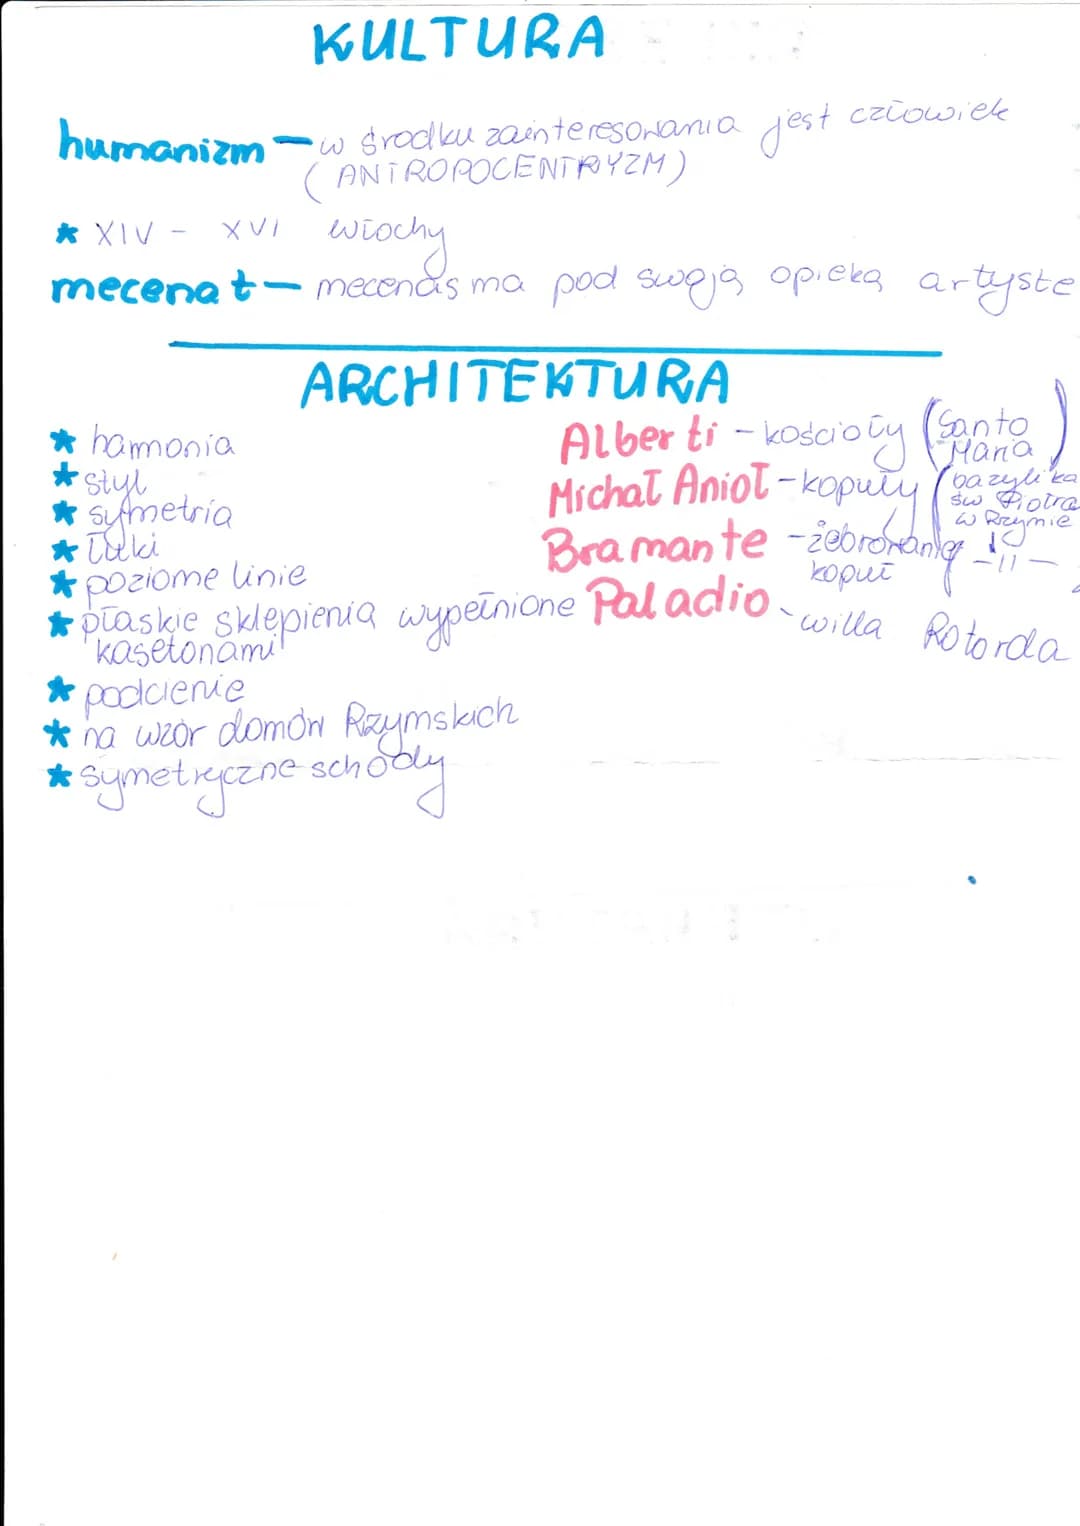 KULTURA
humanizm - w środku zainteresowania jest człowiek
(ANTROPOCENTRYZM)
* XIV - XVI włochy
mecenat - mecenas ma pod swoją opieką artyste
ARCHITEKTURA
* harmonia
* styl
* symetria
* łuki
* poziome linie
* płaskie sklepienia wypełnione
kasetonami
* podcienie
* na wzór domów Rzymskich
* symetryczne schody
Alberti - kościoły (Santo
Maria)
Michał Anioł - kopuły (bazylika
św Piotra
w Rzymie)
Bramante - żebrowanie -11-
kopuł
Paladio - willa Rotorda